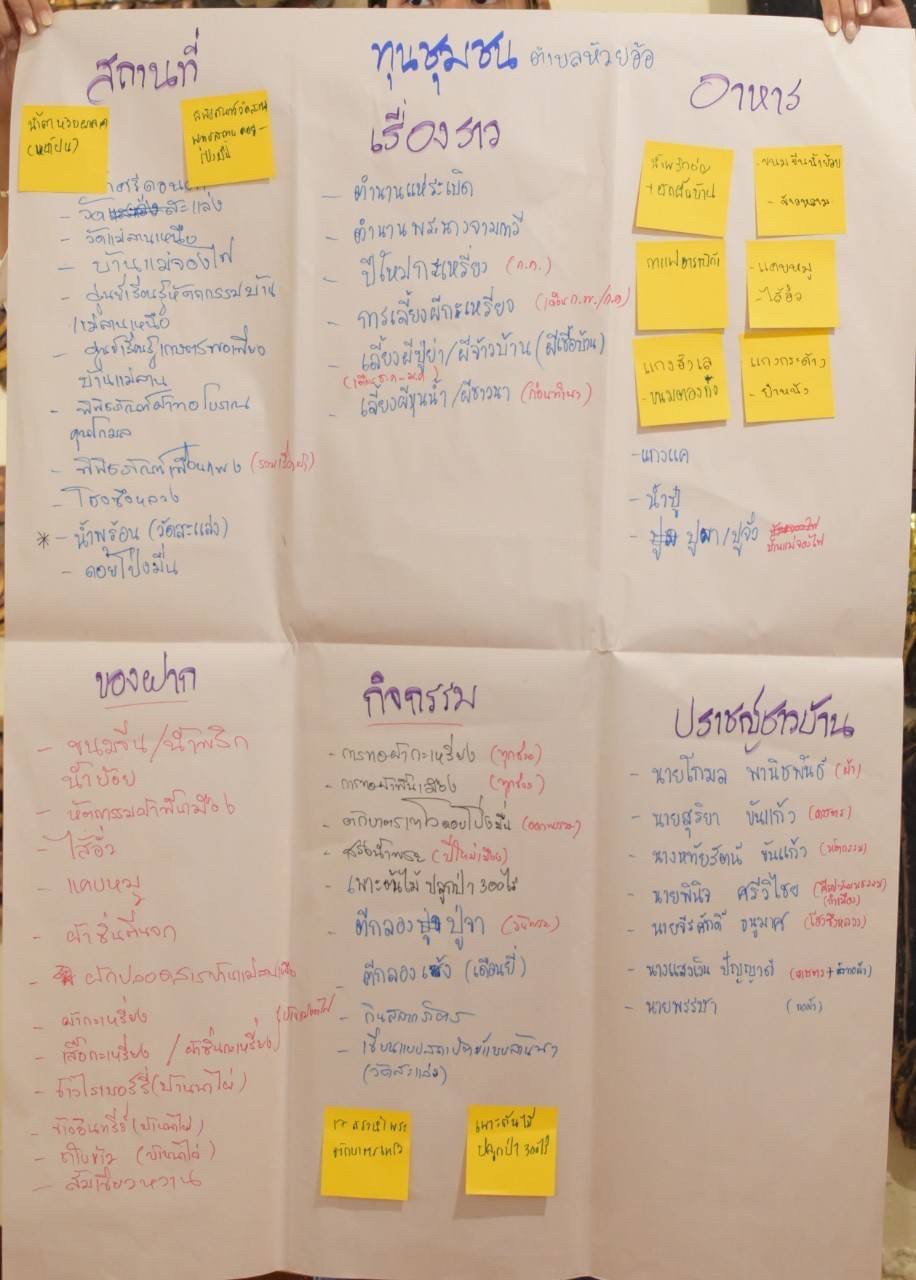 ทุนชุมชน ตำบลห้วยอ้อ
สถานที่
(หน้าฝน)
- วัด สะแล่ง
- วัดแม่ลานเหนือ
- บ้านแม่จองไฟ
- ศูนย์เรียนรู้หัตถกรรมบ้าน
แม่ลานเหนือ
- ศูนย์เรียนรู้เกษตรพอเพียง
บ้านแม่ลาน
- พิพิธภัณฑ์ผ้าทอโบราณ
คุนโกมล
- พิพิธภัณฑ์เฟือนแพง
- โฮงซึงหลวง
* - น้ำพร้อน (วัดสะแล่ง)
- ดอยโป่งมื่น
เรื่องราว
- ตำนานแห่ระเบิด
- ตำนานพระนางจามเทวี
- ปีใหม่กะเหรี่ยง (ก.ค.)
- การเลี้ยงผีกะเหรี่ยง
- เลี้ยงผีปู่ย่า/ผีจ้าวบ้าน (ผีเชื้อบ้าน)
- เลี้ยงผีขุนน้ำ/ผีชาวนา (ก่อนทำนา)
อาหาร
+ ผักพื้นบ้าน
- ขนมจีนน้ำย้อย
- ข้าวหลาม
กาแฟอาราบิก้า
- แคบหมู
- ไส้อั่ว
แกงฮังเล
- ขนมดอกกั๋ง
แกงกระด้าง
- ยำหนัง
- แกงแค
- น้ำปู๋
- ปูผา/ปูจั๋ง บ้านแม่จองไฟ
ของฝาก
- ขนมจีน/น้ำพริก
น้ำย้อย
- หัตถกรรมผ้าพื้นเมือง
- ไส้อั่ว
- แคบหมู
- ผ้าซิ่นตีนจก
- ผักปลอดสารบ้านแม่ลานเหนือ
- ผ้ากะเหรี่ยง
- เสื้อกะเหรี่ยง / ผ้าซิ่นกะเหรี่ยง
- ข้าวไรเบอร์รี่ (บ้านนาไผ่)
- ข้าวอินทรีย์ (บ้านนาไผ่)
(บ้านนาไผ่)
- ส้มเขียวหวาน
กิจกรรม
- การทอผ้ากะเหรี่ยง (ทุกช่วง)
- การทอผ้าพื้นเมือง (ทุกช่วง)
- ตักบาตรเทโวดอยโป่งมื่น (ออกพรรษา)
- สรงน้ำพระ (ปี๋ใหม่เมือง)
- เพาะต้นไม้ ปลูกป่า 300ไร่
- ตีกลอง ปู่จา (วันพระ)
- ตีกลองเส้ง (เดือนยี่)
- กินสลากภัตร
(วัดสะแล่ง)
ตักบาตรเทโว
เพาะต้นไม้
ปลูกป่า 300ไร่
ปราชญ์ชาวบ้าน
- นายโกมล พานิชพันธ์ (ผ้า)
- นายสุริยา ขันแก้ว (เกษตร)
- นางหทัยรัตน์ ขันแก้ว (หัตถกรรม)
- นายพินิจ ศรีวิไชย
- นายจีรศักดิ์ ธนูมาศ (โฮงซึงหลวง)
- นางแสงเงิน ปัญญาดี
- นายพรรษา (ทอผ้า)